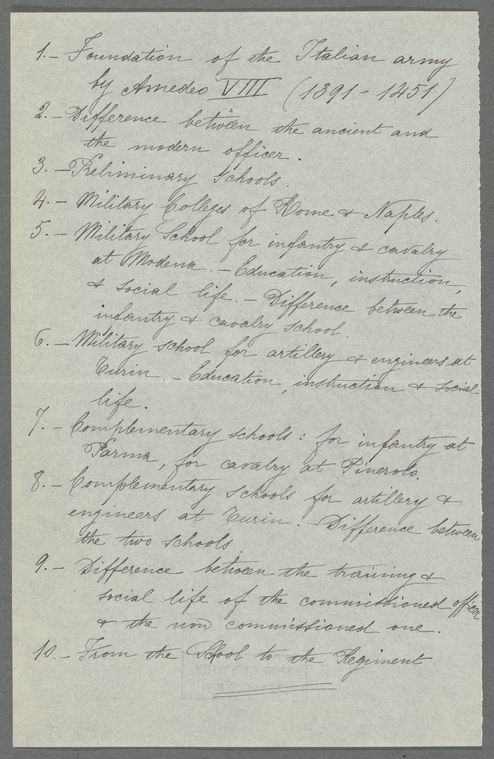 1.- Foundation of the Italian army
by Amedeo VIII (1391-1451)
2.- Difference between the ancient and
the modern officer.
3.- Preliminary Schools.
4.- Military Colleges of Rome & Naples.
5.- Military School for infantry & cavalry
at Modena. - Education, instruction,
& social life. - Difference between the
infantry & cavalry school.
6.- Military school for artillery & engineers at
Turin. - Education, instruction & social
life.
7.- Complementary schools: for infantry at
Parma, for cavalry at Pinerolo.
8.- Complementary schools for artillery &
engineers at Turin. - Difference between
the two schools
9.- Difference between the training &
social life of the commissioned officer
& the non commissioned one.
10.- From the School to the Regiment